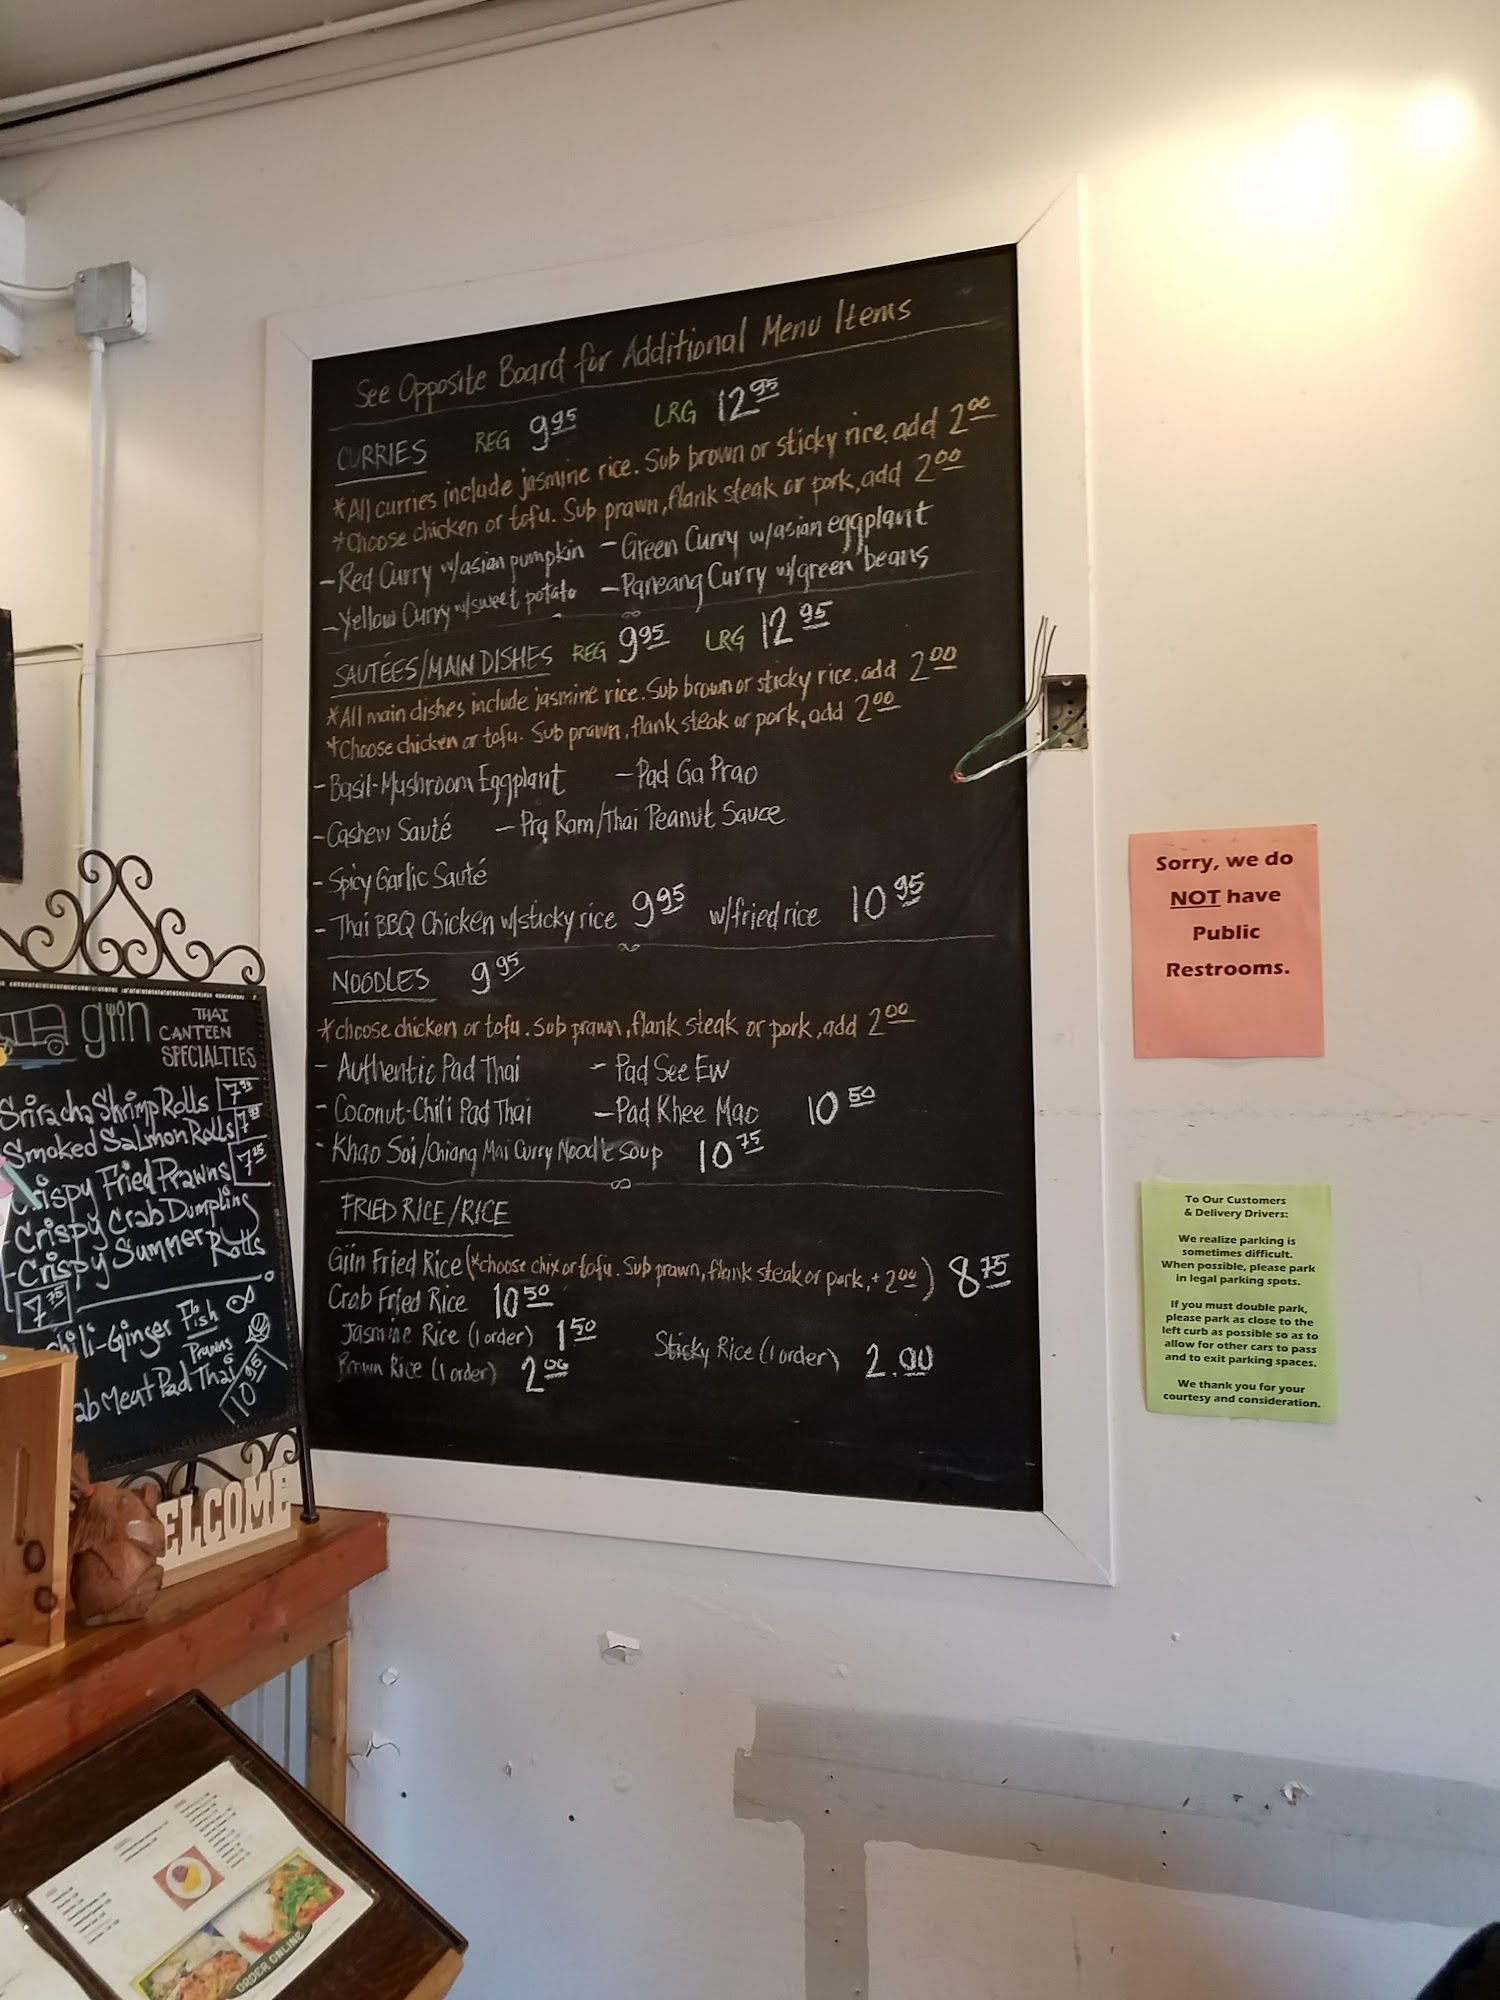 See Opposite Board for Additional Menu Items
CURRIES REG 9.95 LRG 12.95
*All curries include jasmine rice. Sub brown or sticky rice, add 2.00
*Choose chicken or tofu. Sub prawn, flank steak or pork, add 2.00
-Red Curry w/asian pumpkin -Green Curry w/asian eggplant
-Yellow Curry w/sweet potato -Paneang Curry w/green beans
SAUTÉES/MAIN DISHES REG 9.95 LRG 12.95
*All main dishes include jasmine rice. Sub brown or sticky rice. add 2.00
*Choose chicken or tofu. Sub prawn, flank steak or pork, add 2.00
-Basil-Mushroom Eggplant -Pad Ga Prao
-Cashew Sauté -Pra Ram/Thai Peanut Sauce
-Spicy Garlic Sauté
-Thai BBQ Chicken w/sticky rice 9.95 w/fried rice 10.95
NOODLES 9.95
*choose chicken or tofu. Sub prawn, flank steak or pork, add 2.00
- Authentic Pad Thai - Pad See Ew
- Coconut-Chili Pad Thai -Pad Khee Mao 10.50
- Khao Soi/Chiang Mai Curry Noodle soup 10.75
FRIED RICE/RICE
Giin Fried Rice (*choose chix or tofu. Sub prawn, flank steak or pork, + 2.00) 8.75
Crab Fried Rice 10.50
Jasmine Rice (1 order) 1.50
Sticky Rice (1 order) 2.00
Brown Rice (1 order) 2.00
giin THAI
CANTEEN
SPECIALTIES
Sriracha Shrimp Rolls
Smoked Salmon Rolls
Crispy Fried Prawns 7.25
Crispy Crab Dumpling
Crispy Summer Rolls
Chili-Ginger Fish
Prawns
Meat Pad Thai 10.95
WELCOME
ORDER ONLINE
Sorry, we do
NOT have
Public
Restrooms.
To Our Customers
& Delivery Drivers:
We realize parking is
sometimes difficult.
When possible, please park
in legal parking spots.
If you must double park,
please park as close to the
left curb as possible so as to
allow for other cars to pass
and to exit parking spaces.
We thank you for your
courtesy and consideration.